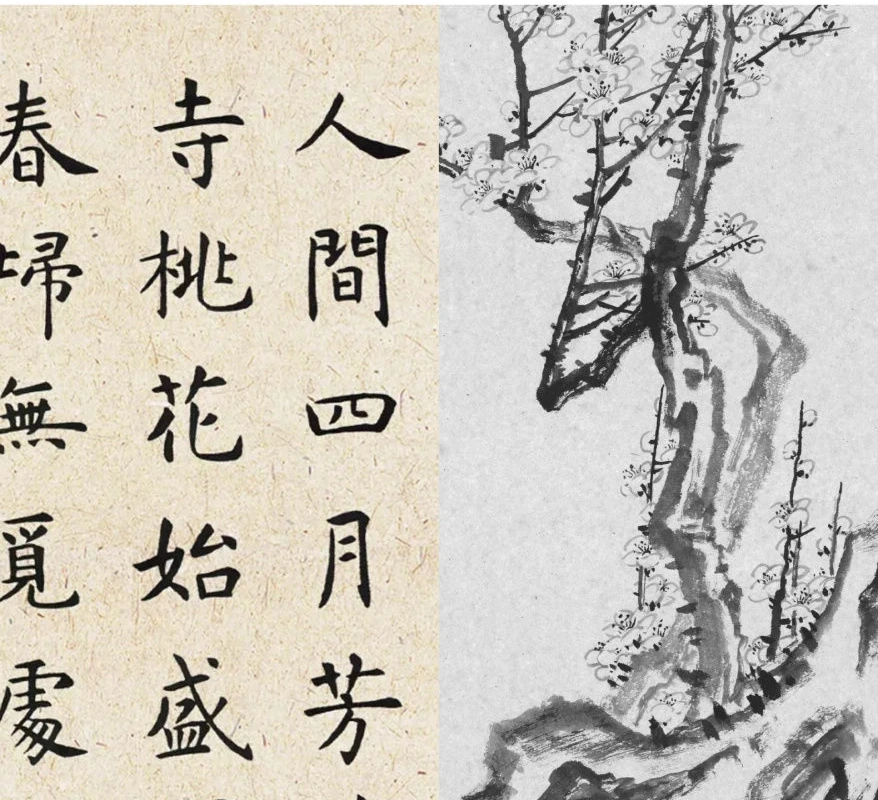 人間四月芳
寺桃花始盛
春歸無覓處